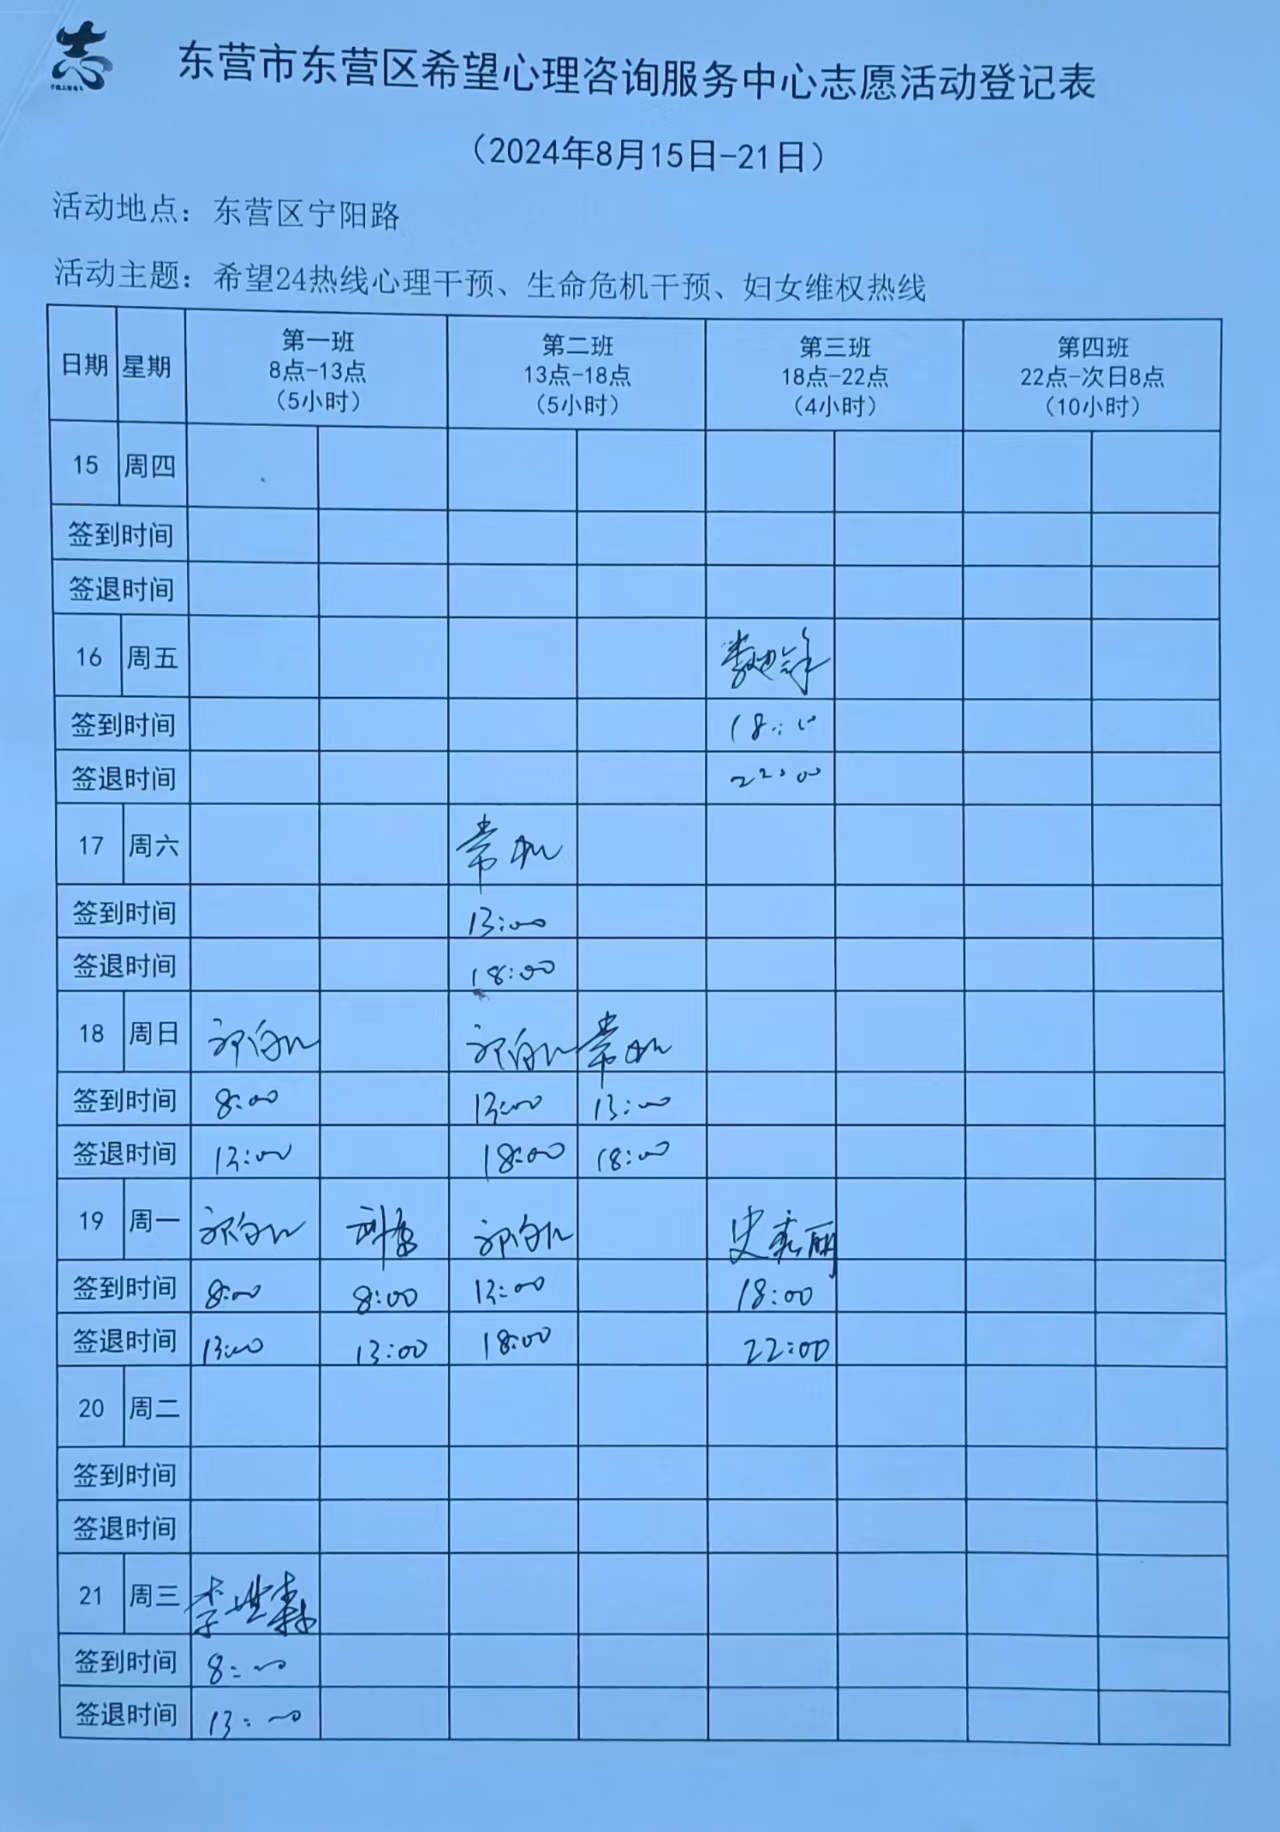 志
东营市东营区希望心理咨询服务中心志愿活动登记表
（2024年8月15日-21日）
活动地点：东营区宁阳路
活动主题：希望24热线心理干预、生命危机干预、妇女维权热线
日期 星期 第一班 8点-13点 （5小时） 第二班 13点-18点 （5小时） 第三班 18点-22点 （4小时） 第四班 22点-次日8点 （10小时）
15 周四
签到时间
签退时间
16 周五
签到时间 18:00
签退时间 22:00
17 周六 常
签到时间 13:00
签退时间 18:00
18 周日 常
签到时间 8:00 13:00 13:00
签退时间 13:00 18:00 18:00
19 周一 史 丽
签到时间 8:00 8:00 13:00 18:00
签退时间 13:00 13:00 18:00 22:00
20 周二
签到时间
签退时间
21 周三 李世森
签到时间 8:00
签退时间 13:00